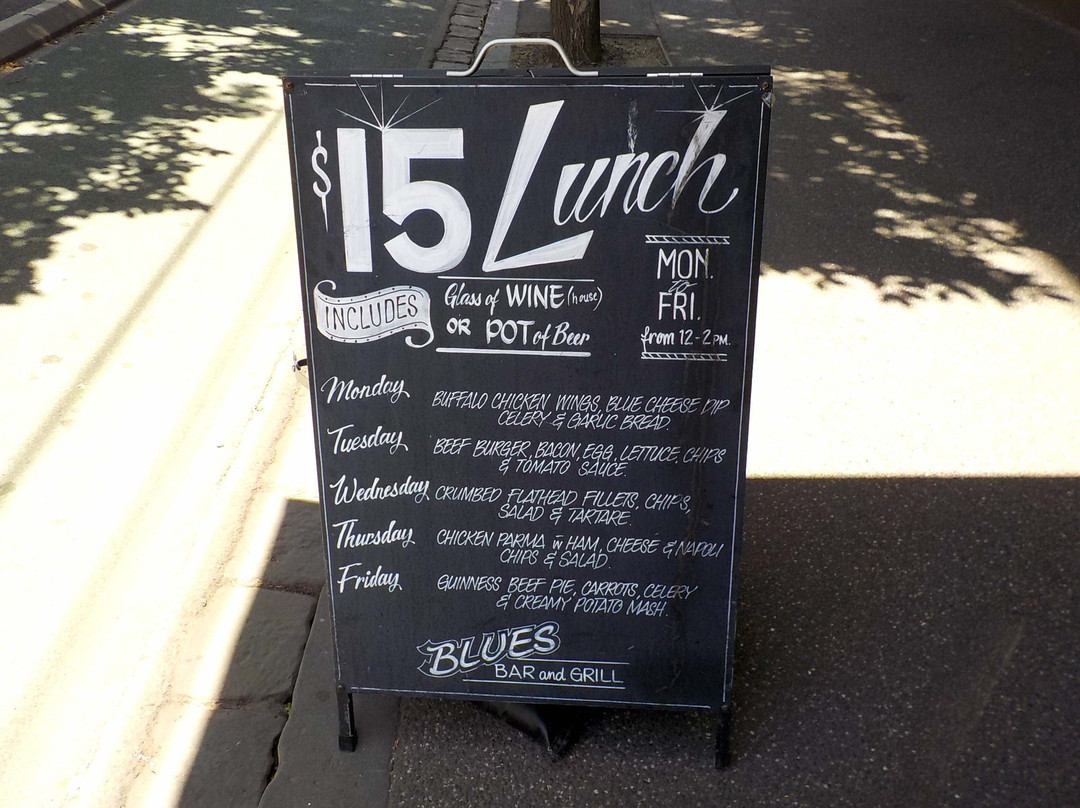 $15 Lunch
INCLUDES
Glass of WINE (house)
OR POT of Beer
MON.
to
FRI.
from 12-2PM.
Monday BUFFALO CHICKEN WINGS, BLUE CHEESE DIP
CELERY & GARLIC BREAD.
Tuesday BEEF BURGER, BACON, EGG, LETTUCE, CHIPS
& TOMATO SAUCE.
Wednesday CRUMBED FLATHEAD FILLETS, CHIPS,
SALAD & TARTARE.
Thursday CHICKEN PARMA w̄ HAM, CHEESE & NAPOLI
CHIPS & SALAD.
Friday GUINNESS BEEF PIE, CARROTS, CELERY
& CREAMY POTATO MASH.
BLUES
BAR and GRILL